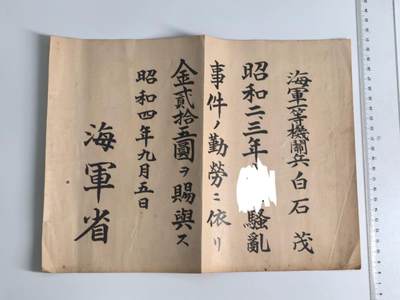 海軍一等機關兵白石茂
昭和二三年 騷亂
事件ノ勤勞ニ依リ
金貳拾五圓ヲ賜與ス
昭和四年九月五日
海軍省